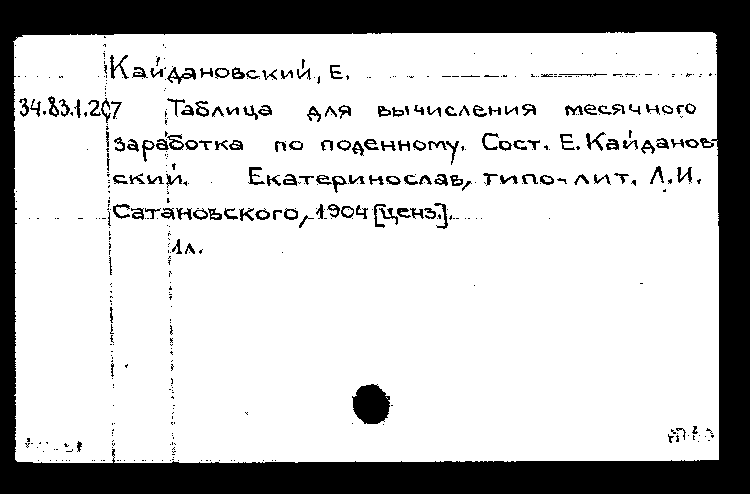 Кайдановский, Е.
34.83.1.207 Таблица для вычисления месячного
заработка по поденному. Сост. Е. Кайданов-
ский. Екатеринослав, типо-лит. Л.И.
Сатановского, 1904 [ценз.].
1л.